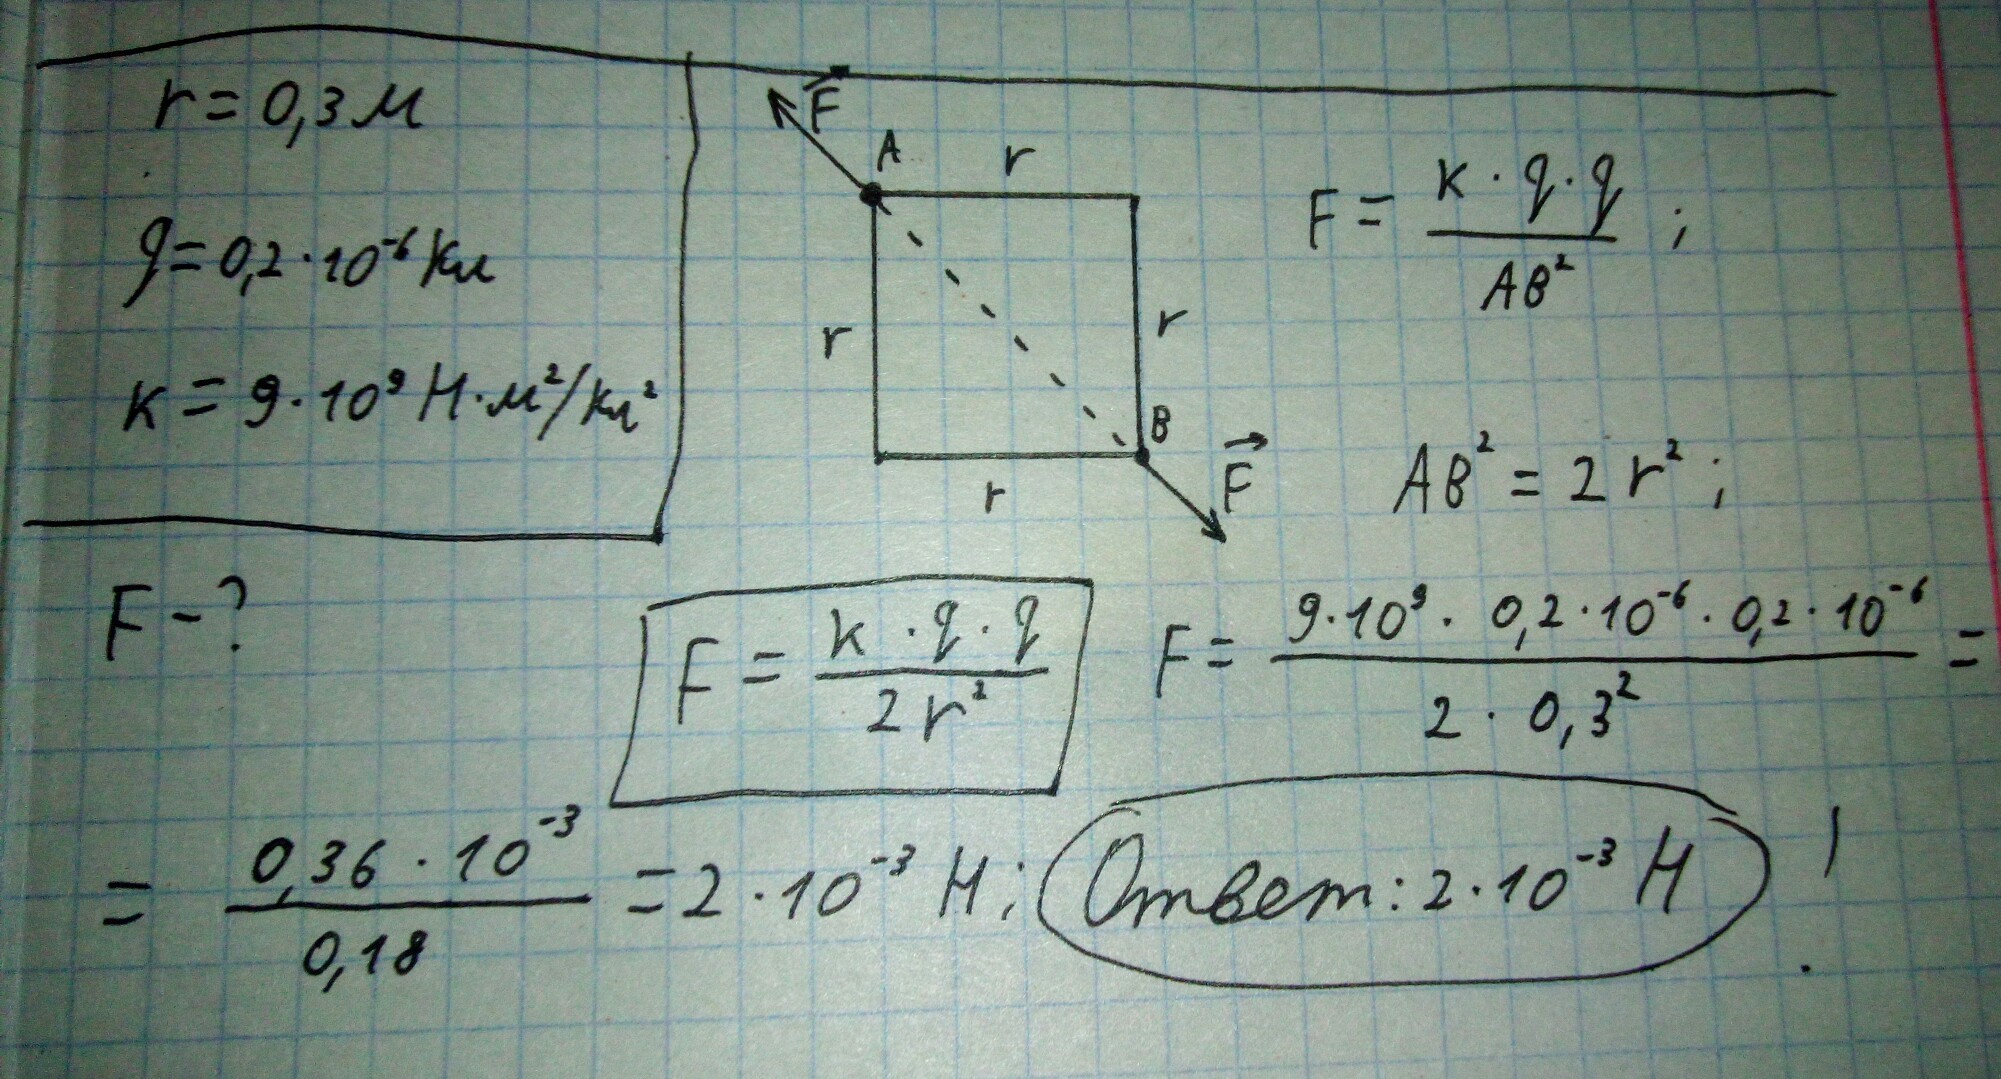 r = 0,3 м
q = 0,2 · 10⁻⁶ Кл
к = 9 · 10⁹ Н · м²/Кл²
F - ?
F⃗
A
r
r
r
B
r
F⃗
F = к · q · q / AB² ;
AB² = 2 r² ;
F = к · q · q / 2 r²
F = 9 · 10⁹ · 0,2 · 10⁻⁶ · 0,2 · 10⁻⁶ / 2 · 0,3² =
= 0,36 · 10⁻³ / 0,18 = 2 · 10⁻³ Н; Ответ: 2 · 10⁻³ Н !